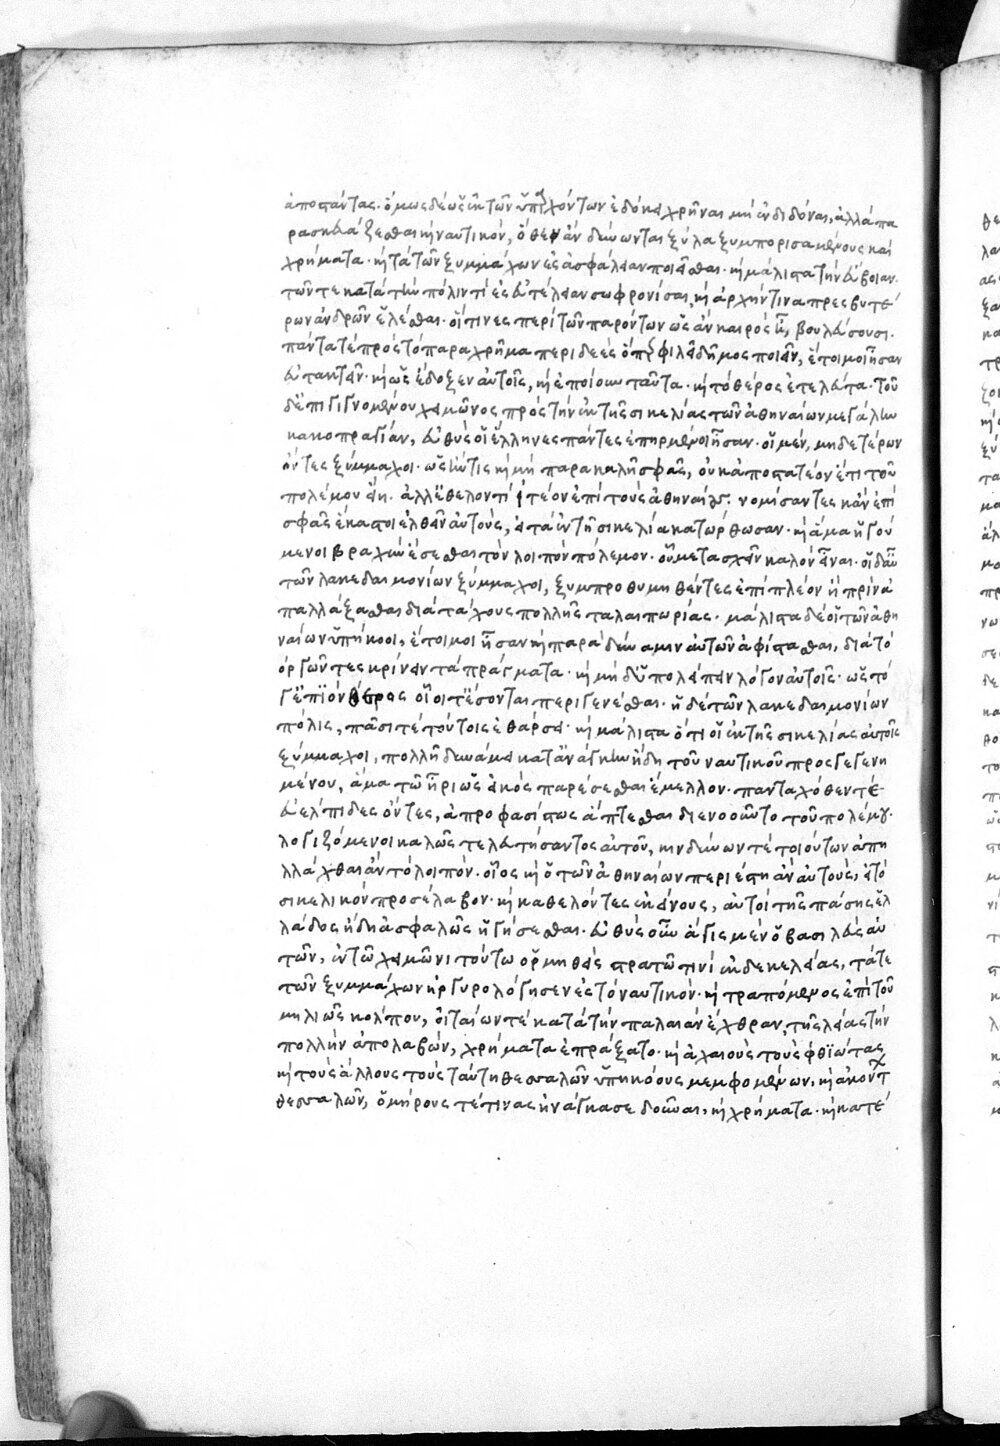 ἀποστάντας. ὅμως δὲ ὡς ἐκ τῶν ὑπαρχόντων ἐδόκει χρῆναι μὴ ἐνδιδόναι, ἀλλὰ πα
ρασκευάζεσθαι καὶ ναυτικόν, ὅθεν ἂν δύνωνται ξύλα ξυμπορισαμένους καὶ
χρήματα. καὶ τὰ τῶν ξυμμάχων ἐς ἀσφάλειαν ποιεῖσθαι. καὶ μάλιστα τὴν εὔβοιαν.
τῶν τε κατὰ τὴν πόλιν τὶ ἐς εὐτέλειαν σωφρονίσαι, καὶ ἀρχήν τινα πρεσβυτέ
ρων ἀνδρῶν ἑλέσθαι. οἵτινες περὶ τῶν παρόντων ὡς ἂν καιρὸς ἦ, βουλεύσουσι.
πάντα τὲ πρὸς τὸ παραχρῆμα περιδεὲς ὅπερ φιλεῖ δῆμος ποιεῖν, ἕτοιμοι ἦσαν
εὐτακτεῖν. καὶ ὡς ἔδοξεν αὐτοῖς, καὶ ἐποίουν ταῦτα. καὶ τὸ θέρος ἐτελεύτα. τοῦ
δ' ἐπιγιγνομένου χειμῶνος πρὸς τὴν ἐκ τῆς σικελίας τῶν ἀθηναίων μεγάλην
κακοπραγίαν, εὐθὺς οἱ ἕλληνες πάντες ἐπηρμένοι ἦσαν. οἱ μέν, μηδετέρων
ὄντες ξύμμαχοι. ὡς ἤν τις καὶ μὴ παρακαλῇ σφᾶς, οὐκ ἀποστατέον ἔτι τοῦ
πολέμου εἴη. ἀλλ' ἐθελοντὶ ἰτέον ἐπὶ τοὺς ἀθηναίους. νομίσαντες κἂν ἐπὶ
σφᾶς ἕκαστοι ἐλθεῖν αὐτούς, εἰ τὰ ἐν τῇ σικελία κατώρθωσαν. καὶ ἅμα ἡγού
μενοι βραχὺν ἔσεσθαι τὸν λοιπὸν πόλεμον. οὗ μετασχεῖν καλὸν εἶναι. οἱ δ' αὖ
τῶν λακεδαιμονίων ξύμμαχοι, ξυμπροθυμηθέντες ἐπὶ πλέον ἢ πρὶν ἀ
παλλάξασθαι διὰ τάχους πολλῆς ταλαιπωρίας. μάλιστα δὲ οἱ τῶν ἀθη
ναίων ὑπήκοοι, ἕτοιμοι ἦσαν καὶ παρὰ δύναμιν αὐτῶν ἀφίστασθαι, διὰ τὸ
ὀργῶντες κρίνειν τὰ πράγματα. καὶ μὴ δ' ὑπολείπειν λόγον αὐτοῖς. ὡς τό
γ' ἐπϊὸν θέρος οἷοί τ' ἔσονται περιγενέσθαι. ἡ δὲ τῶν λακεδαιμονίων
πόλις, πᾶσί τὲ τούτοις ἐθάρσει. καὶ μάλιστα ὅτι οἱ ἐκ τῆς σικελίας αὐτοῖς
ξύμμαχοι, πολλῇ δυνάμει κατ' ἀνάγκην ἤδη τοῦ ναυτικοῦ προσγεγενη
μένου, ἅμα τῷ ἦρι ὡς εἰκὸς παρέσεσθαι ἔμελλον. πανταχόθεν τὲ
εὐέλπιδες ὄντες, ἀπροφασίστως ἅπτεσθαι διενοοῦντο τοῦ πολέμου.
λογιζόμενοι καλῶς τελευτήσαντος αὐτοῦ, κινδύνων τὲ τοιούτων ἀπη
λλάχθαι ἂν τὸ λοιπόν. οἷος καὶ ὁ τῶν ἀθηναίων περιέστη ἂν αὐτούς, εἰ τὸ
σικελικὸν προσέλαβον. καὶ καθελόντες ἐκείνους, αὐτοὶ τῆς πάσης ἑλ
λάδος ἤδη ἀσφαλῶς ἡγήσεσθαι. εὐθὺς οὖν ἆγις μὲν ὁ βασιλεὺς αὐ
τῶν, ἐν τῷ χειμῶνι τούτω ὁρμηθεὶς στρατῷ τινὶ ἐκ δεκελείας, τά τε
τῶν ξυμμάχων ἠργυρολόγησεν ἐς τὸ ναυτικόν. καὶ τραπόμενος ἐπὶ τοῦ
μηλιῶς κόλπου, οἰταίων τὲ κατὰ τὴν παλαιὰν ἔχθραν, τῆς λείας τὴν
πολλὴν ἀπολαβών, χρήματα ἐπράξατο. καὶ ἀχαιοὺς τοὺς φθϊώτας
καὶ τοὺς ἄλλους τοὺς ταύτη θεσσαλῶν ὑπηκόους μεμφομένων, καὶ ἀκόντων
θεσσαλῶν, ὁμήρους τέ τινας ἠνάγκασε δοῦναι, καὶ χρήματα. καὶ κατέ